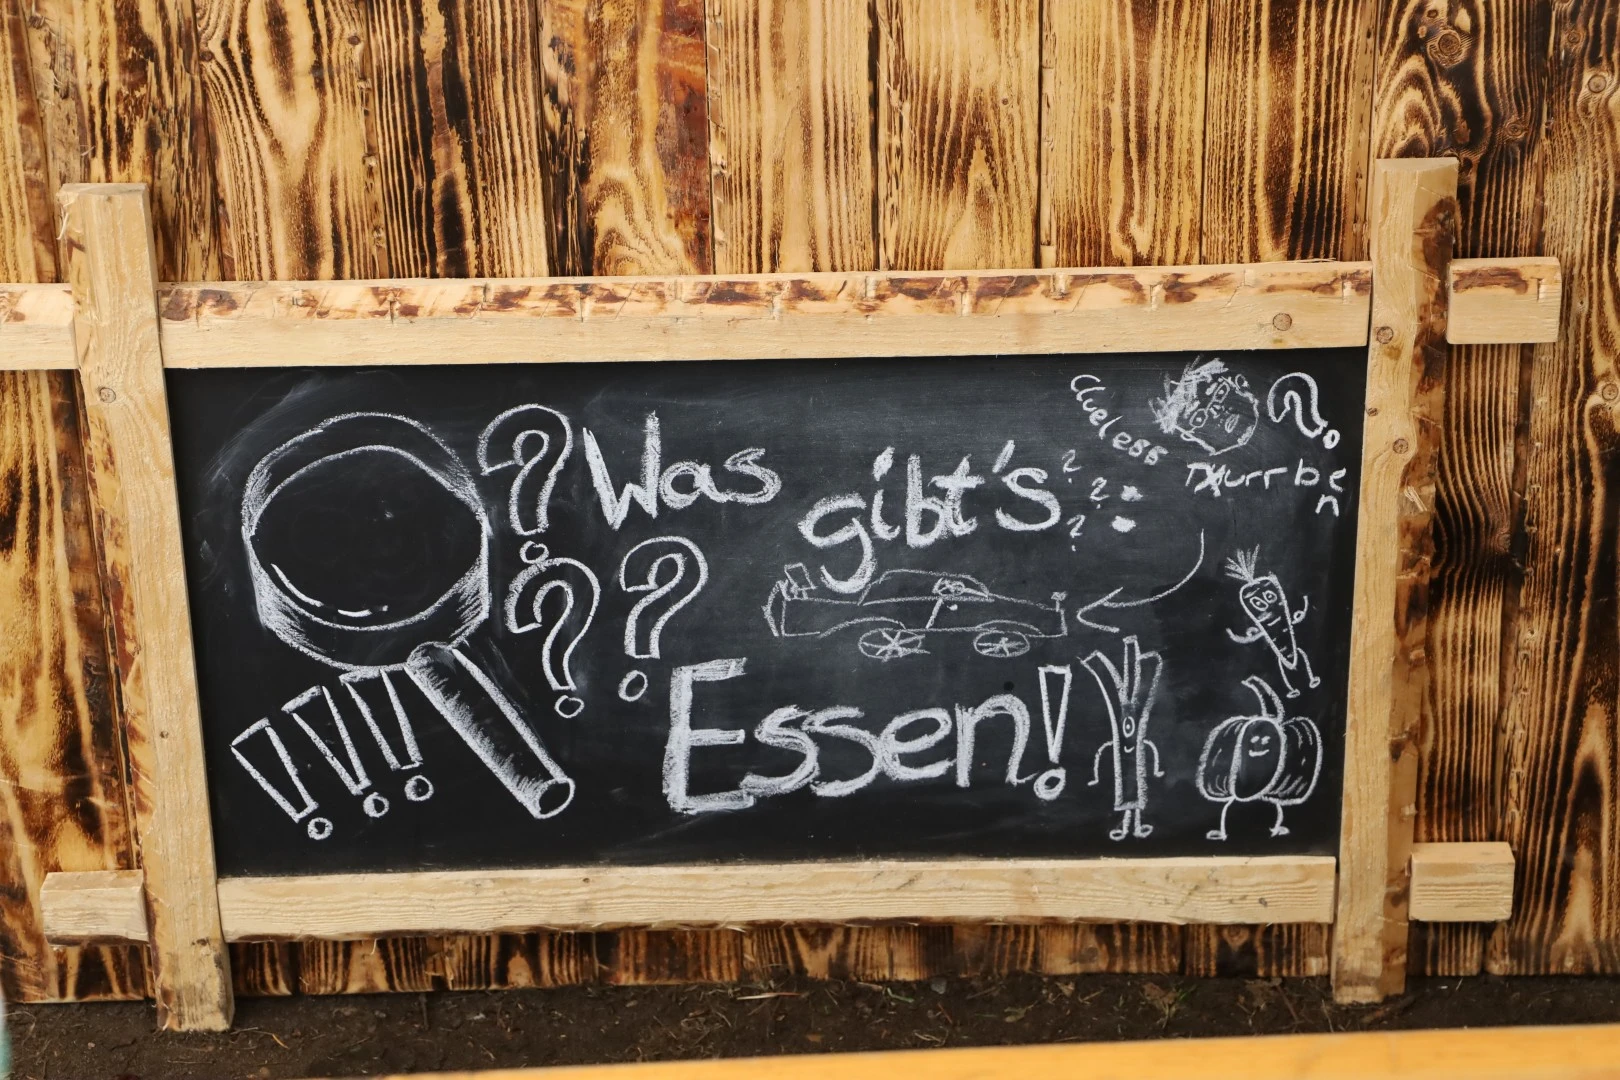 Was gibt's
Essen!
Clueless